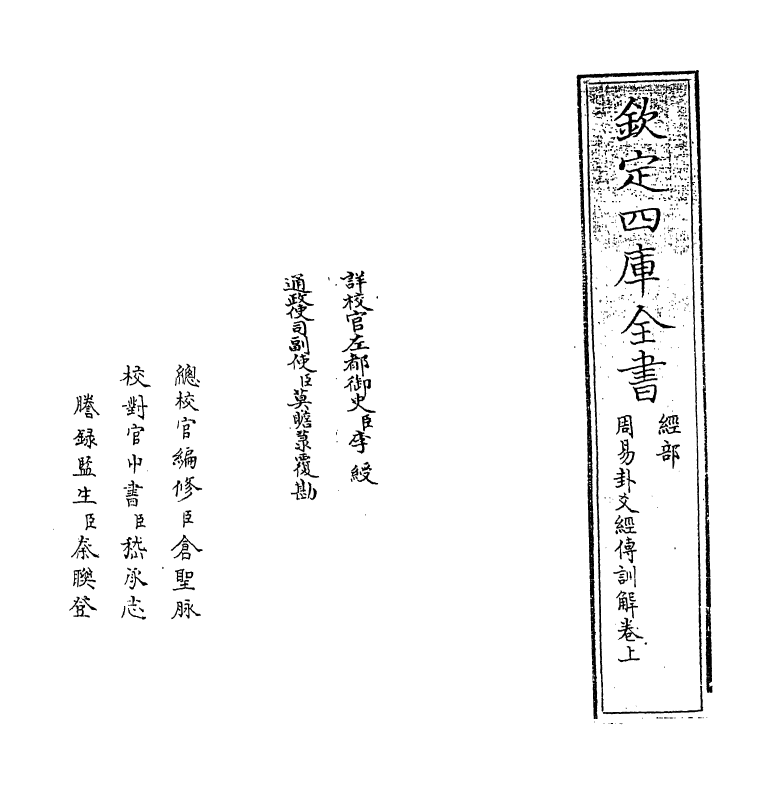 欽定四庫全書
經部
周易卦爻經傳訓解卷上
詳校官左都御史臣李綬
通政使司副使臣莫瞻菉覆勘
總校官編修臣倉聖脉
校對官中書臣嵇承志
謄録監生臣秦聯登